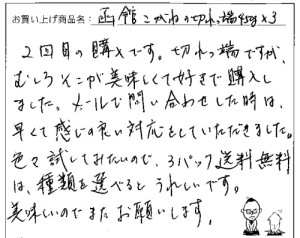 お買い上げ商品名:函館こがねの切れっ端45g×3
2回目の購入です。切れっ端ですが、
むしろそこが美味しくて好きで購入し
ました。メールで問い合わせした時は、
早くて感じの良い対応をしていただきました。
色々試してみたいので、3パック送料無料
は、種類を選べると うれしいです。
美味しいのでまたお願いします。